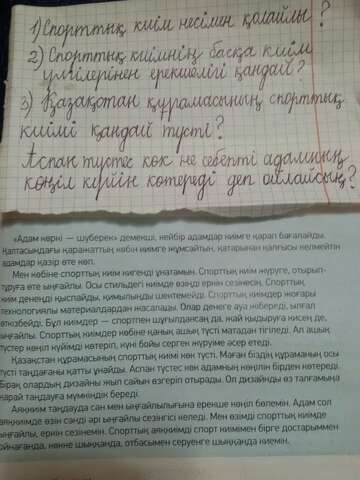 1) Спорттық киім несімен қолайлы?
2) Спорттық киімнің басқа киім
үлгілерінен ерекшелігі қандай?
3) Қазақстан құрамасының спорттық
киімі қандай түсті?
Аспан түстес көк не себепті адамның
көңіл күйін көтереді деп ойлайсың?
«Адам көркі — шүберек» демекші, кейбір адамдар киімге қарап бағалайды.
Қалтасындағы қаражаттың көбін киімге жұмсайтын, қатарынан қалғысы келмейтін
адамдар қазір өте көп.
Мен көбіне спорттық киім кигенді ұнатамын. Спорттық киім жүруге, отырып-
тұруға өте ыңғайлы. Осы стильдегі киімде өзіңді еркін сезінесің. Спорттық
киім денеңді қыспайды, қимылыңды шектемейді. Спорттық киімдер жоғары
технологиялы материалдардан жасалады. Олар денеге ауа жібереді, ылғал
өткізбейді. Бұл киімдер — спортпен шұғылдансаң да, жай жыдыруға кисең де,
ыңғайлы. Спорттық киімдер көбіне қанық ашық түсті матадан тігіледі. Ал ашық
түстер көңіл күйімді көтеріп, күні бойы сергек жүруіме әсер етеді.
Қазақстан құрамасының спорттық киімі көк түсті. Маған біздің құраманың осы
түсті таңдағаны қатты ұнайды. Аспан түстес көк адамның көңілін бірден көтереді.
Бірақ олардың дизайны жыл сайын өзгеріп отырады. Ол дизайнды өз талғамыңа
қарай таңдауға мүмкіндік береді.
Аяқкиім таңдауда сән мен ыңғайлылығына ерекше көңіл бөлемін. Адам сол
аяқкиімде өзін сәнді әрі ыңғайлы сезінгісі келеді. Мен өзімді спорттық киімде
ыңғайлы, еркін сезінемін. Спорттық аяқкиімді спорт киіммен бірге достарыммен
ойнағанда, көкке шыққанда, отбасымен серуенге шыққанда киемін.